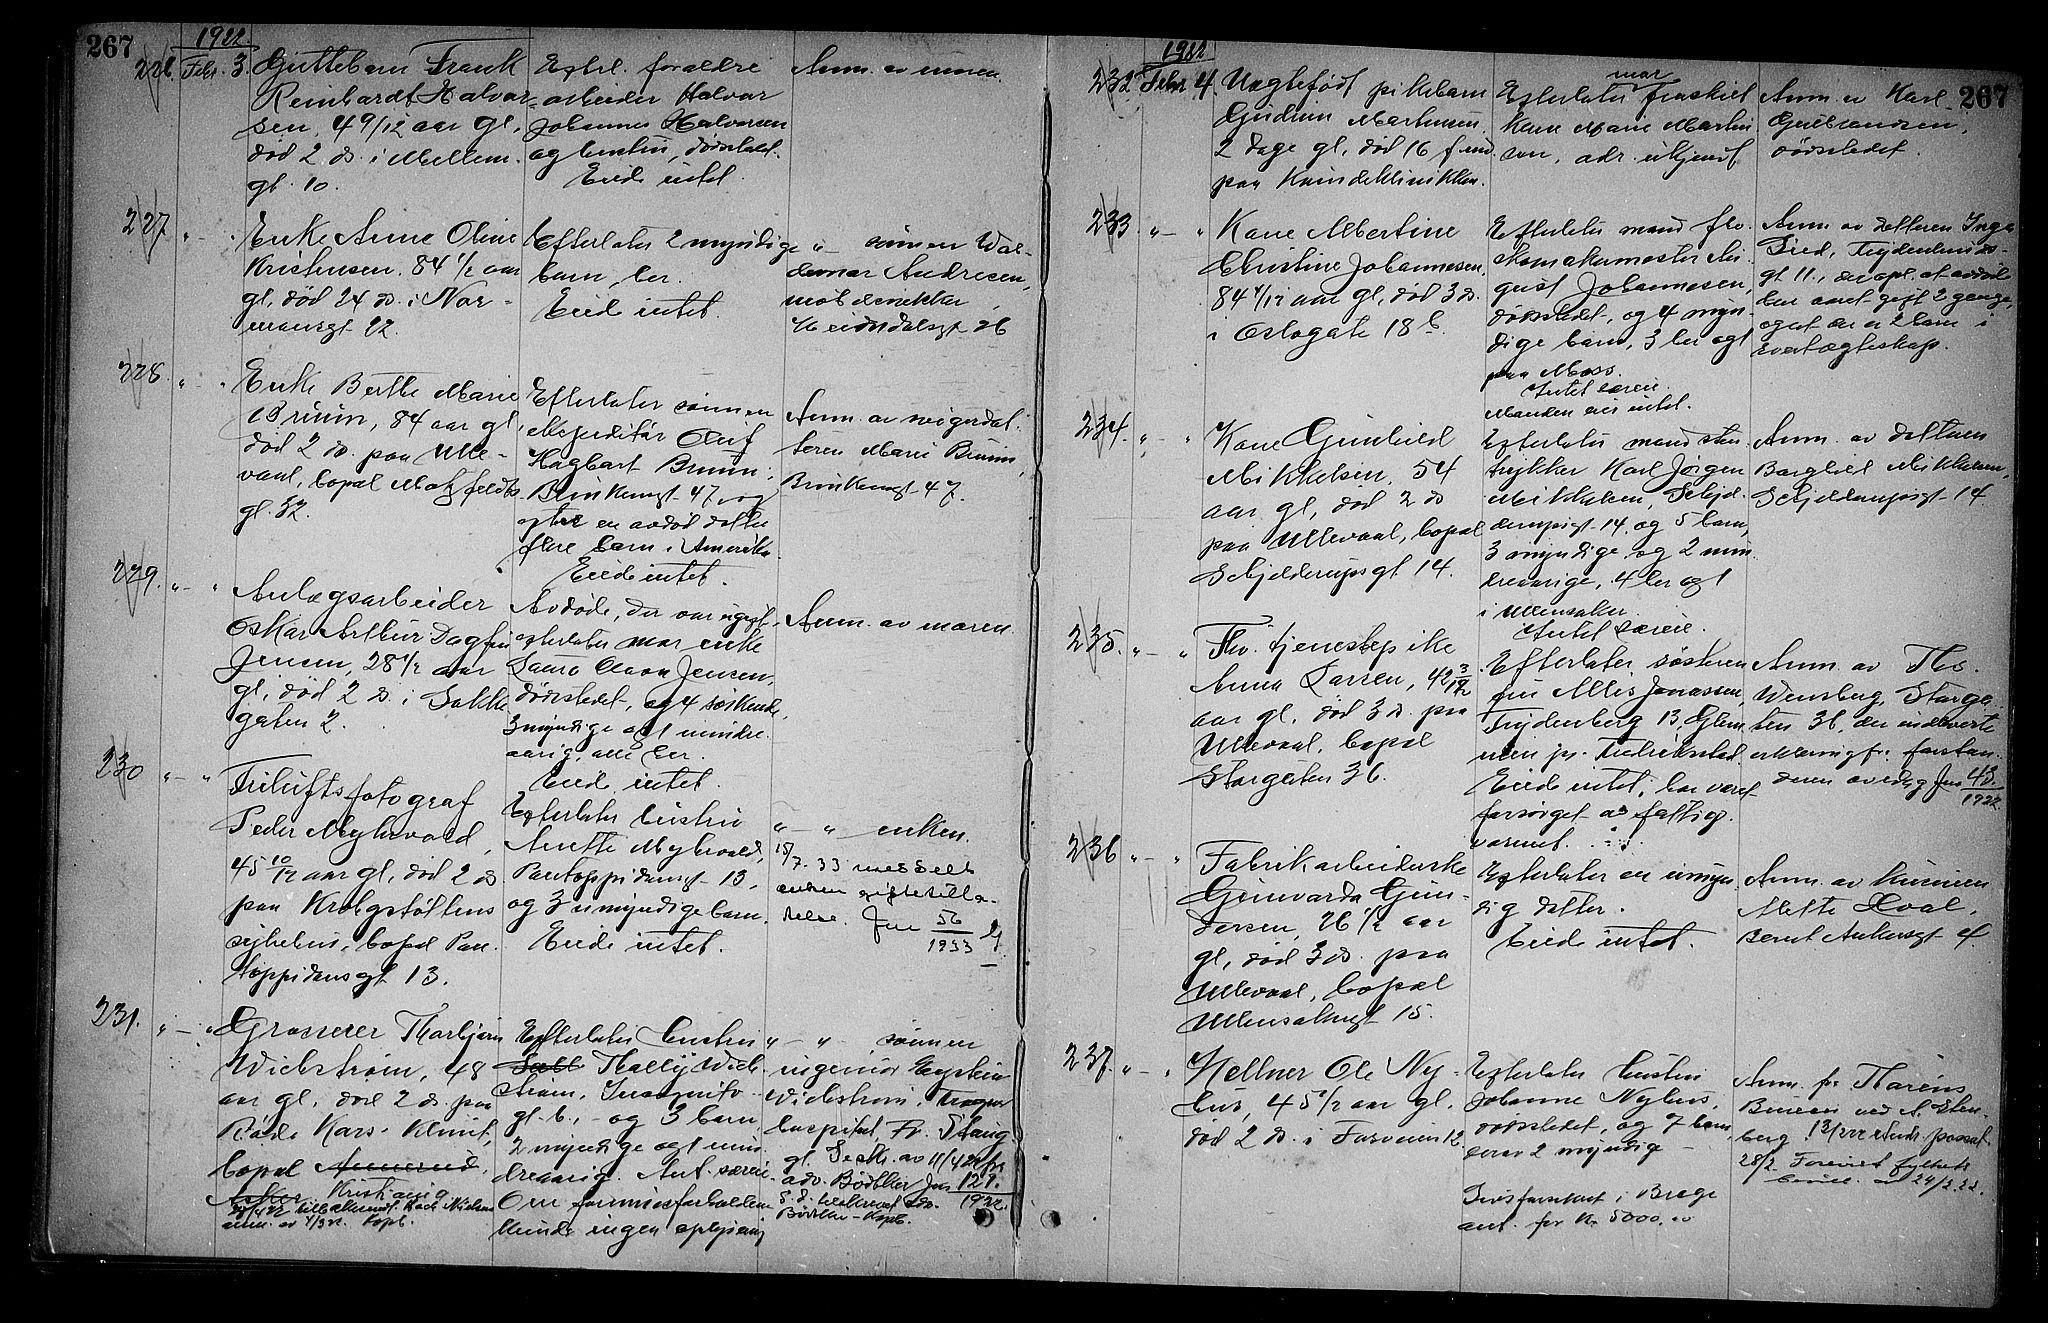 267
1922
226. Febr. 3.
Guttebarn Frank
Reinhardt Halvor-
sen, 4 9/12 aar gl,
død 2 ds. i Mellem-
gt. 10.
Efterl. forældre
arbeider Halvor
Johannes Halvorsen
og hustru, dødsstedet.
Eiede intet.
Anm. av moren.
227 " — "
Enke Anne Oline
Kristensen, 84 1/2 aar
gl, død 24 ds. i Nor-
mansgt 22.
Efterlater 2 myndige
barn, her.
Eiede intet.
" sønnen Wal-
demar Andresen,
møbelsnekker
Heimdalsgt 26
228. " — "
Enke Berthe Marie
Bruun, 84 aar gl,
død 2 ds. paa Ulle-
vaal, bopæl Motzfeldts-
gt. 32.
Efterlater sønnen
ekspeditør Oluf
Hagbart Bruun,
Brinkensgt 47, og
efter en avdød datter
flere barn i Amerika.
Eiede intet.
Anm. av svigerdat-
teren Marie Bruun,
Brinkensgt 47.
229. " — "
Anlægsarbeider
Oskar Arthur Dagfin
Jensen, 28 1/2 aar
gl, død 2 ds. i Bakke-
gaten 2.
Avdøde, der var ugift,
efterlater mor enke
Laura Olava Jensen,
dødsstedet, og 4 søskende,
3 myndige og 1 mindre-
aarig, alle her.
Eiede intet.
Anm. av moren.
230 " — "
Friluftsfotograf
Peder Myhrvold,
45 10/12 aar gl, død 2 ds
paa Krohgstøttens
sykehus, bopæl Pan-
toppidansgt 13.
Efterlater hustru
Anette Myhrvold,
Pantoppidansgt 13,
og 3 umyndige barn.
Eiede intet.
" — " enken.
15/7. 33 meddelt
enken giftetilla-
telse. Jnr 56/1933
231. " — "
Grosserer Thorbjørn
Wickstrøm, 48
aar gl, død 2 ds. paa
Røde Kors Klinik,
bopæl
Asker Kristiania
Efterlater hustru
Thally Wick-
strøm, Incognito-
gt. 6, og 3 barn,
2 myndige og 1 min-
dreaarig. Ant. særeie.
Om formuesforholdene
kunde ingen oplysning
" — " sønnen
ingeniør Eystein
Wickstrøm,
hospital, Fr. Stang
gt. Besk. av 11/4 22 fra
adv. Bødtker Jnr 127./1922.
Bødtker – Kopb.
267
1922
232 Febr 4.
Uægtefødt pikebarn
Gudrun Martinsen
2 dage gl, død 16 f. md.
paa Kvindeklinikken.
Efterlater mor fraskilt
kone Marie Martin-
sen, adr. ukjendt
Anm. av Karl
Gulbrandsen,
dødsstedet.
233 " — "
Kone Albertine
Christine Johannesen,
84 4/12 aar gl, død 3 ds.
i Oslogate 18 b.
Efterlater mand fhv.
skomakermester Au-
gust Johannesen,
dødsstedet, og 4 myn-
dige barn, 3 her og 1
paa Moss.
Intet særeie.
Manden eier intet.
Anm. av datteren Inga
Lied, Frydenlunds-
gt 11, der opl. at avdøde
har været gift 2 gange,
og at der er 2 barn i
hvert ægteskap.
234. " — "
Kone Gunhild
Mikkelsen, 54
aar gl, død 2 ds
paa Ullevaal, bopæl
Schjelderupsgt 14.
Efterlater mand sten-
trykker Karl Jørgen
Mikkelsen, Schjel-
derupsgt 14, og 5 barn,
3 myndige og 2 min-
dreaarige, 4 her og 1
i Ullensaker.
Intet særeie.
Anm. av datteren
Borghild Mikkelsen,
Schjelderupsgt 14
235. " — "
Fhv. tjenestepike
Anna Larsen, 42 3/12
aar gl, død 3 ds. paa
Ullevaal, bopæl
Storgaten 36.
Efterlater søsteren
fru Alis Jonassen,
Frydenberg 13 Glem-
men pr. Fredrikstad.
Eiede intet, har været
forsørget av fattig-
væsenet.
Anm. av Ths.
Wensberg, Storga-
ten 36, der endvidere
erklæring fr. forstan-
deren Jnr 43./1922
236 " — "
Fabrikarbeiderske
Gunvarda Gun-
dersen, 26 1/2 aar
gl, død 3 ds. paa
Ullevaal, bopæl
Ullensakergt 15.
Efterlater en umyn-
dig datter.
Eiede intet.
Anm. av kusinen
Mette Hval,
Bernt Ankersgt 4
237. " — "
Kellner Ole Ny-
hus, 45 1/2 aar gl.
død 2 ds. i Torvein 12
Efterlater hustru
Johanne Nyhus,
dødsstedet, og 7 barn,
hvorav 2 myndig
Livsforsikret i Brage
ant. for Kr 5000.00
Anm. fr Thorens
Bureau ved A. Sten-
berg. 13/2 22
28/2.
24/2.22.